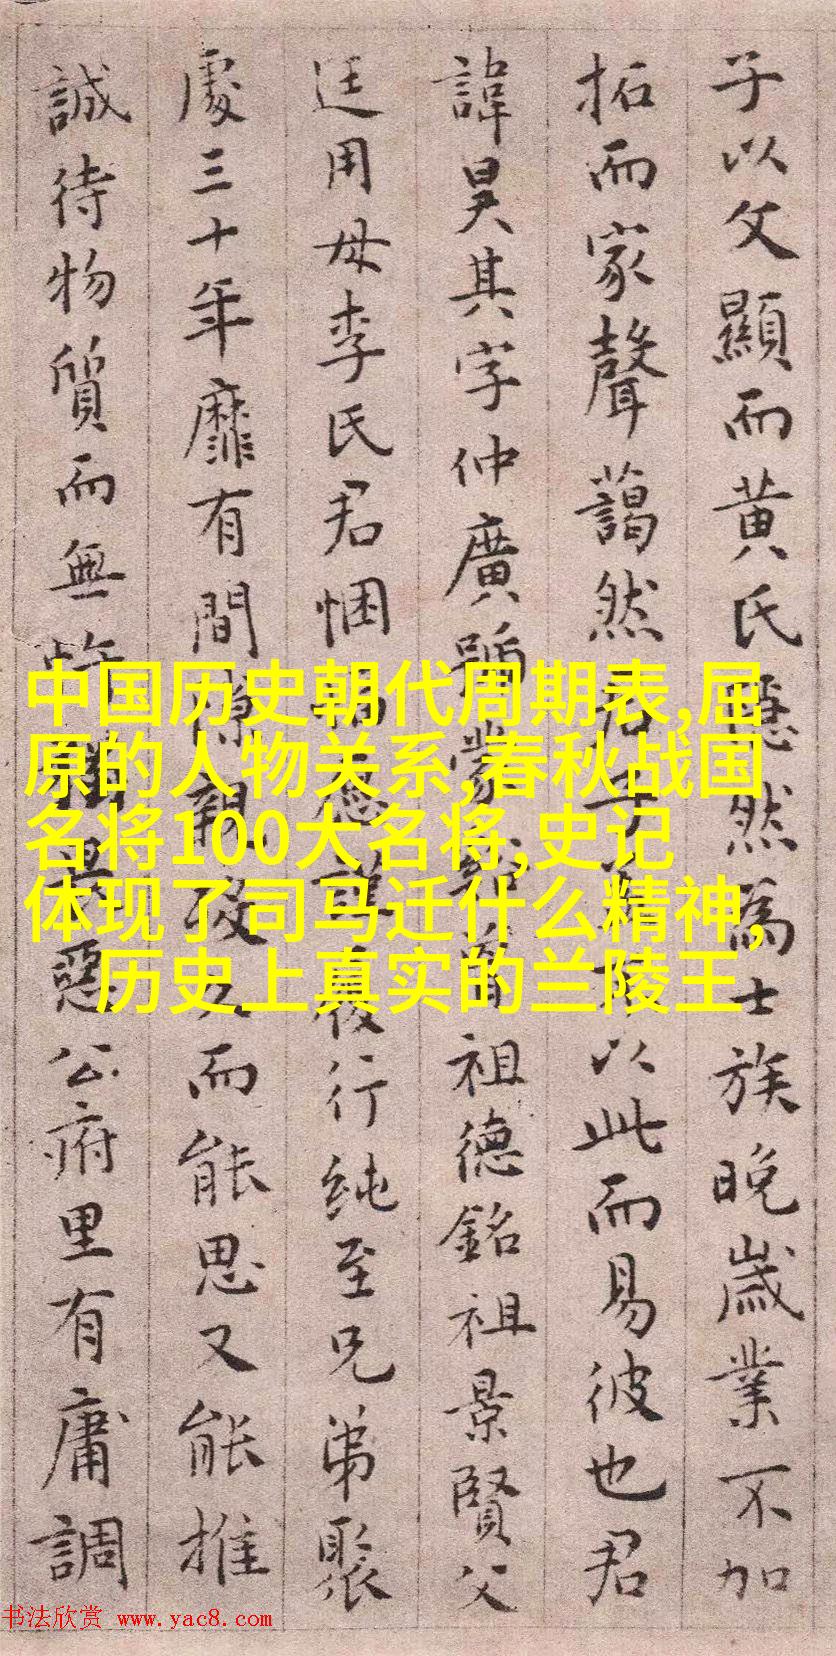 子以父顯而黄氏隱然為士族晚歲業不加
拓而家聲藹然君子以此而易彼也君
諱昊其字仲廣號蒙祖德銘祖景賢父
廷用母李氏君悃行純至兄弟聚
處三十年靡有間親而能思又能推
誠待物質而無惡公府里有庸調
中国历史朝代周期表,屈
原的人物关系,春秋战国
名将100大名将,史记
体现了司马迁什么精神,
历史上真实的兰陵王
书法欣赏 www.yac8.com